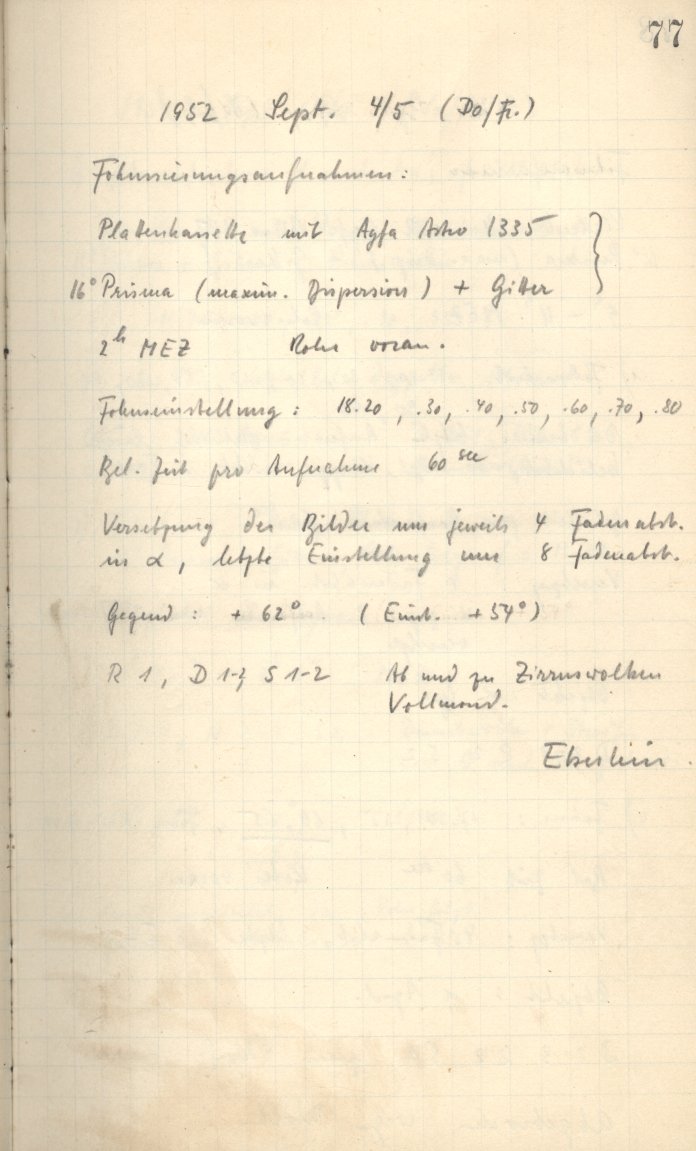 77
1952 Sept. 4/5 (Do/Fr.)
Fokussierungsaufnahmen:
Plattenkassette mit Agfa Astro 1335
16° Prisma (maxim. Dispersion) + Gitter
2h MEZ Rohr voran.
Fokuseinstellung: 18.20, .30, .40, .50, .60, .70, .80
Bel. Zeit pro Aufnahme 60 sec
Versetzung der Bilder um jeweils 4 Fadenabst.
in α, letzte Einstellung um 8 Fadenabst.
Gegend: + 62° (Einst. +54°)
R 1, D 1-2, S 1-2 Ab und zu Zirruswolken
Vollmond.
Eberlein